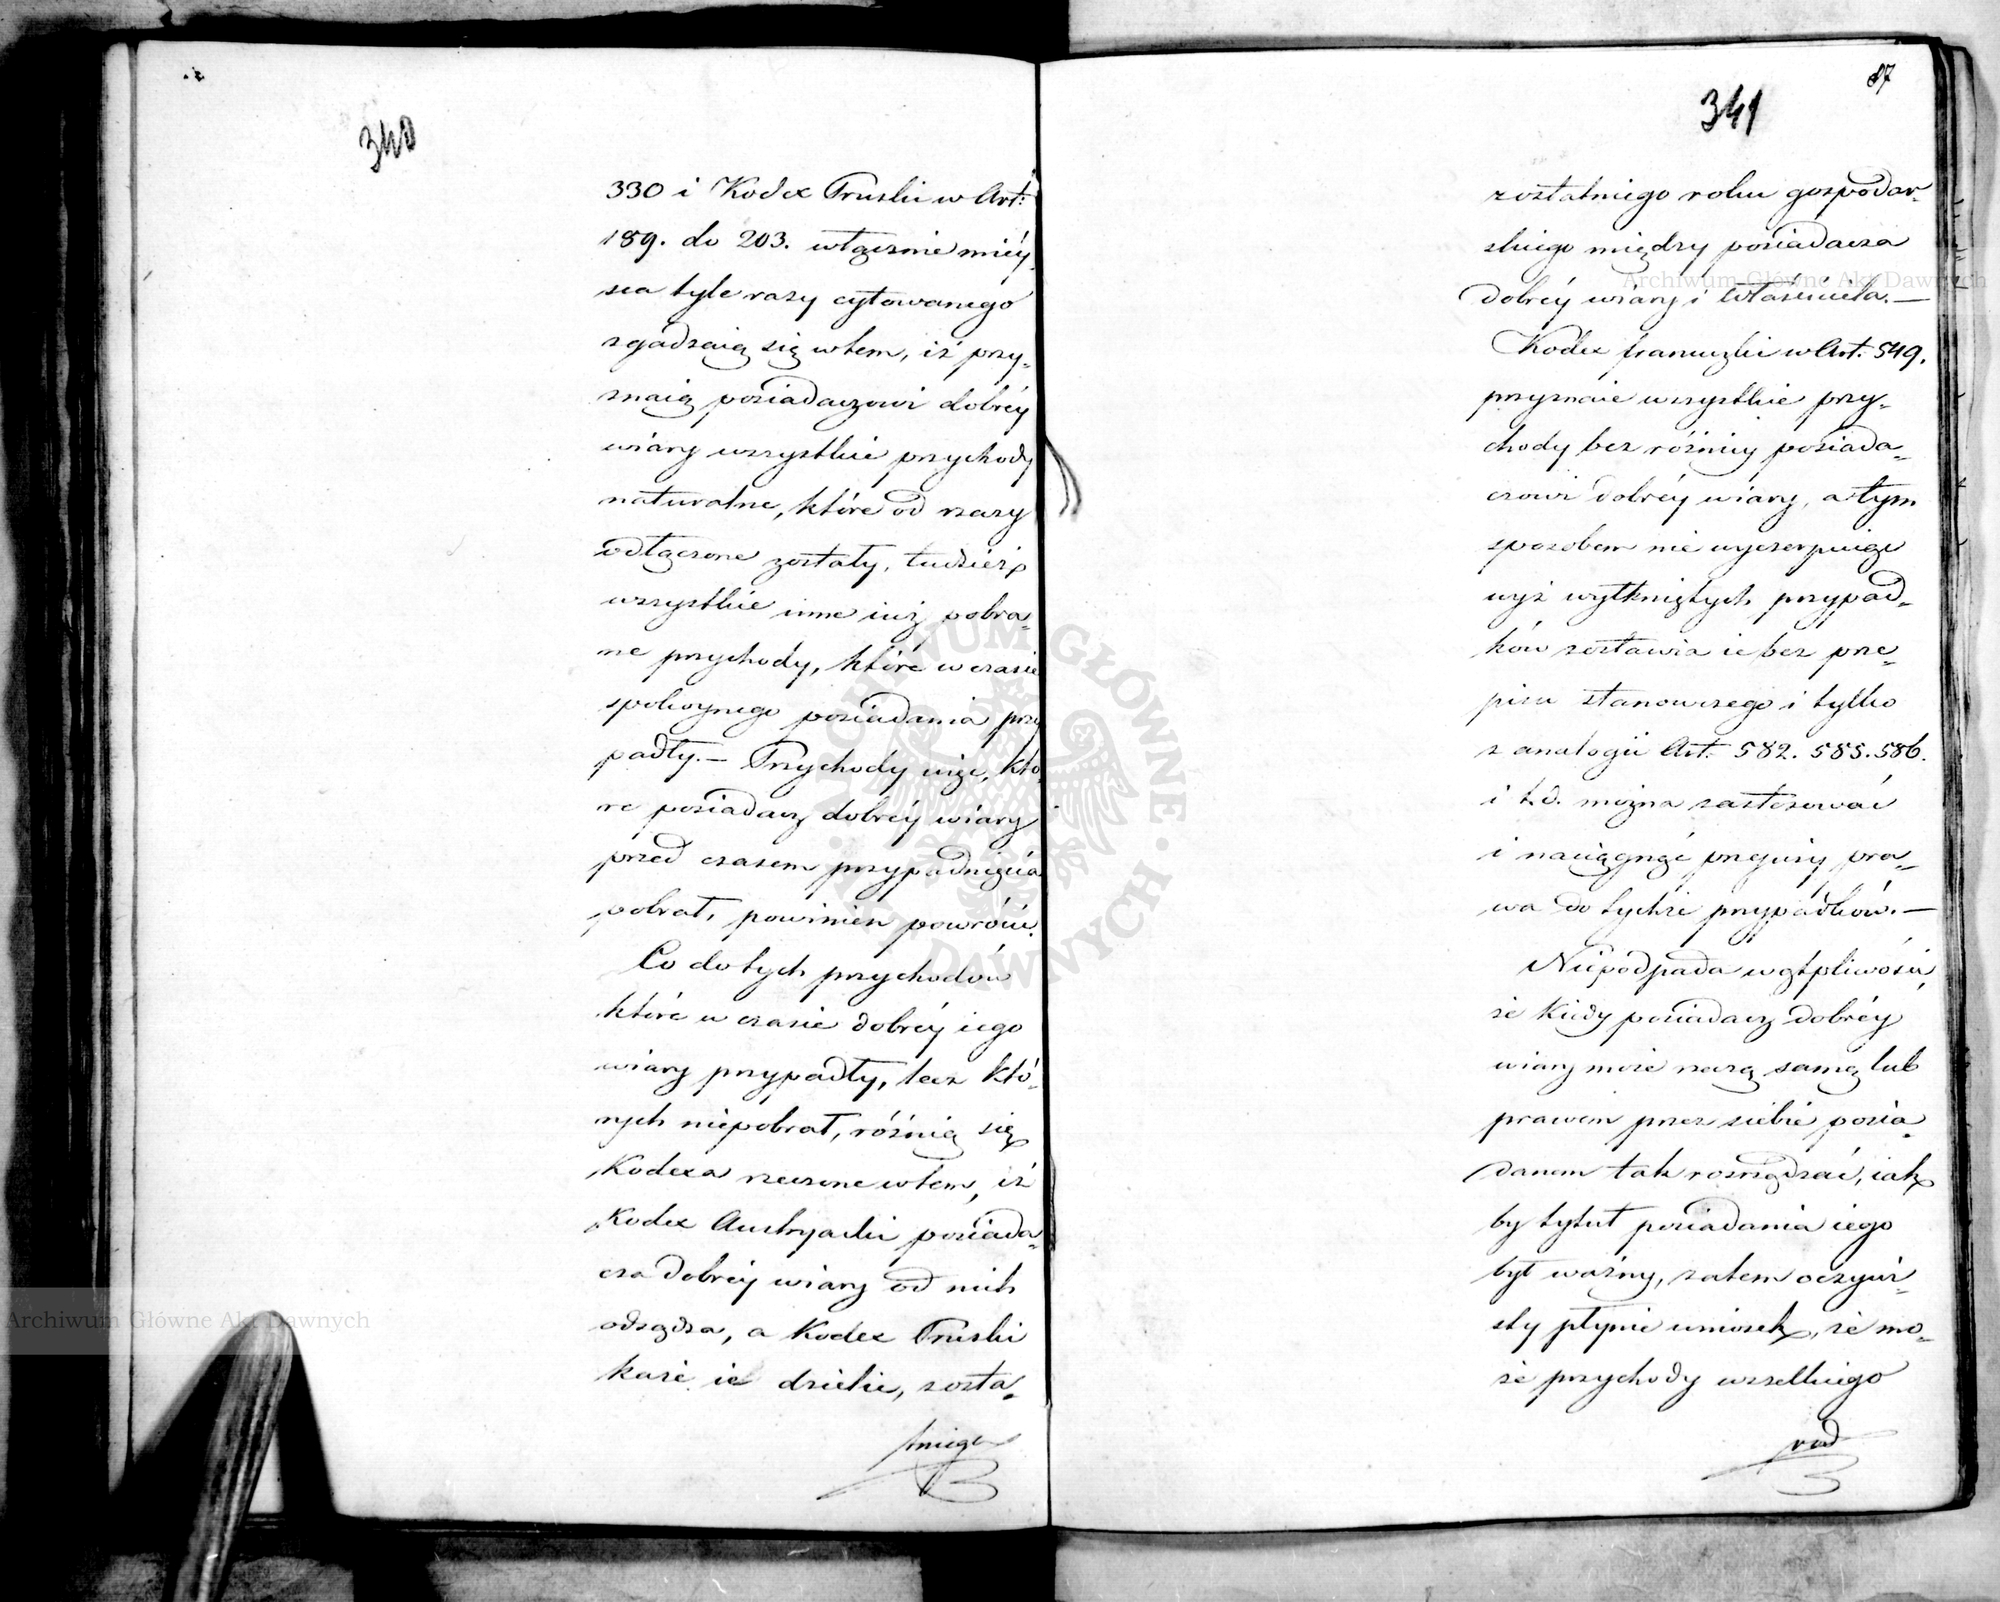 340
330 i Kodex Pruski w Art:
189. do 203. włącznie miéy-
sca tyle razy cytowanego
zgadzaią się w tem, iż przy-
znaią posiadaczowi dobréy
wiary wszystkie przychody
naturalne, które od rzeczy
odłączone zostały, tudzież
wszystkie inne iuż pobra-
ne przychody, które w czasie
spokoynego posiadania przy
padły. — Przychody więc, któ-
re posiadacz dobréy wiary
przed czasem przypadnięcia
pobrał, powinien powrócić.
Co do tych przychodów
które w czasie dobréy iego
wiary przypadły, lecz któ-
rych niepobrał, różnią się
Kodexa rzeczone w tem, iż
Kodex Austryacki posiada-
cza dobréy wiary od nich
odsądza, a Kodex Pruski
każe ie dzielić, zosta-
tniego
87
341
z ostatniego roku gospodar-
skiego między posiadacza
dobréy wiary i właściciela. —
Kodex francuzki w Art: 549.
przyznaie wszystkie przy-
chody bez różnicy posiada-
czowi dobréy wiary, a tym
sposobem nie wyczerpuiąc
wyż wytkniętych przypad-
ków zostawia ie bez prze-
pisu stanowczego i tylko
z analogii Art: 582. 585. 586.
i t.d. można zastosować
i naciągnąć przepisy pra-
wa do tychże przypadków. —
Niepodpada wątpliwości,
że kiedy posiadacz dobréy
wiary może rzeczą samą lub
prawem przez siebie posia-
danem tak rozrządzać, iak
by tytuł posiadania iego
był ważny, zatem oczywi-
sty płynie wniosek, że mo-
że przychody wszelkiego
rod
Archiwum Główne Akt Dawnych
Archiwum Główne Akt Dawnych
ARCHIWUM GŁÓWNE AKT DAWNYCH